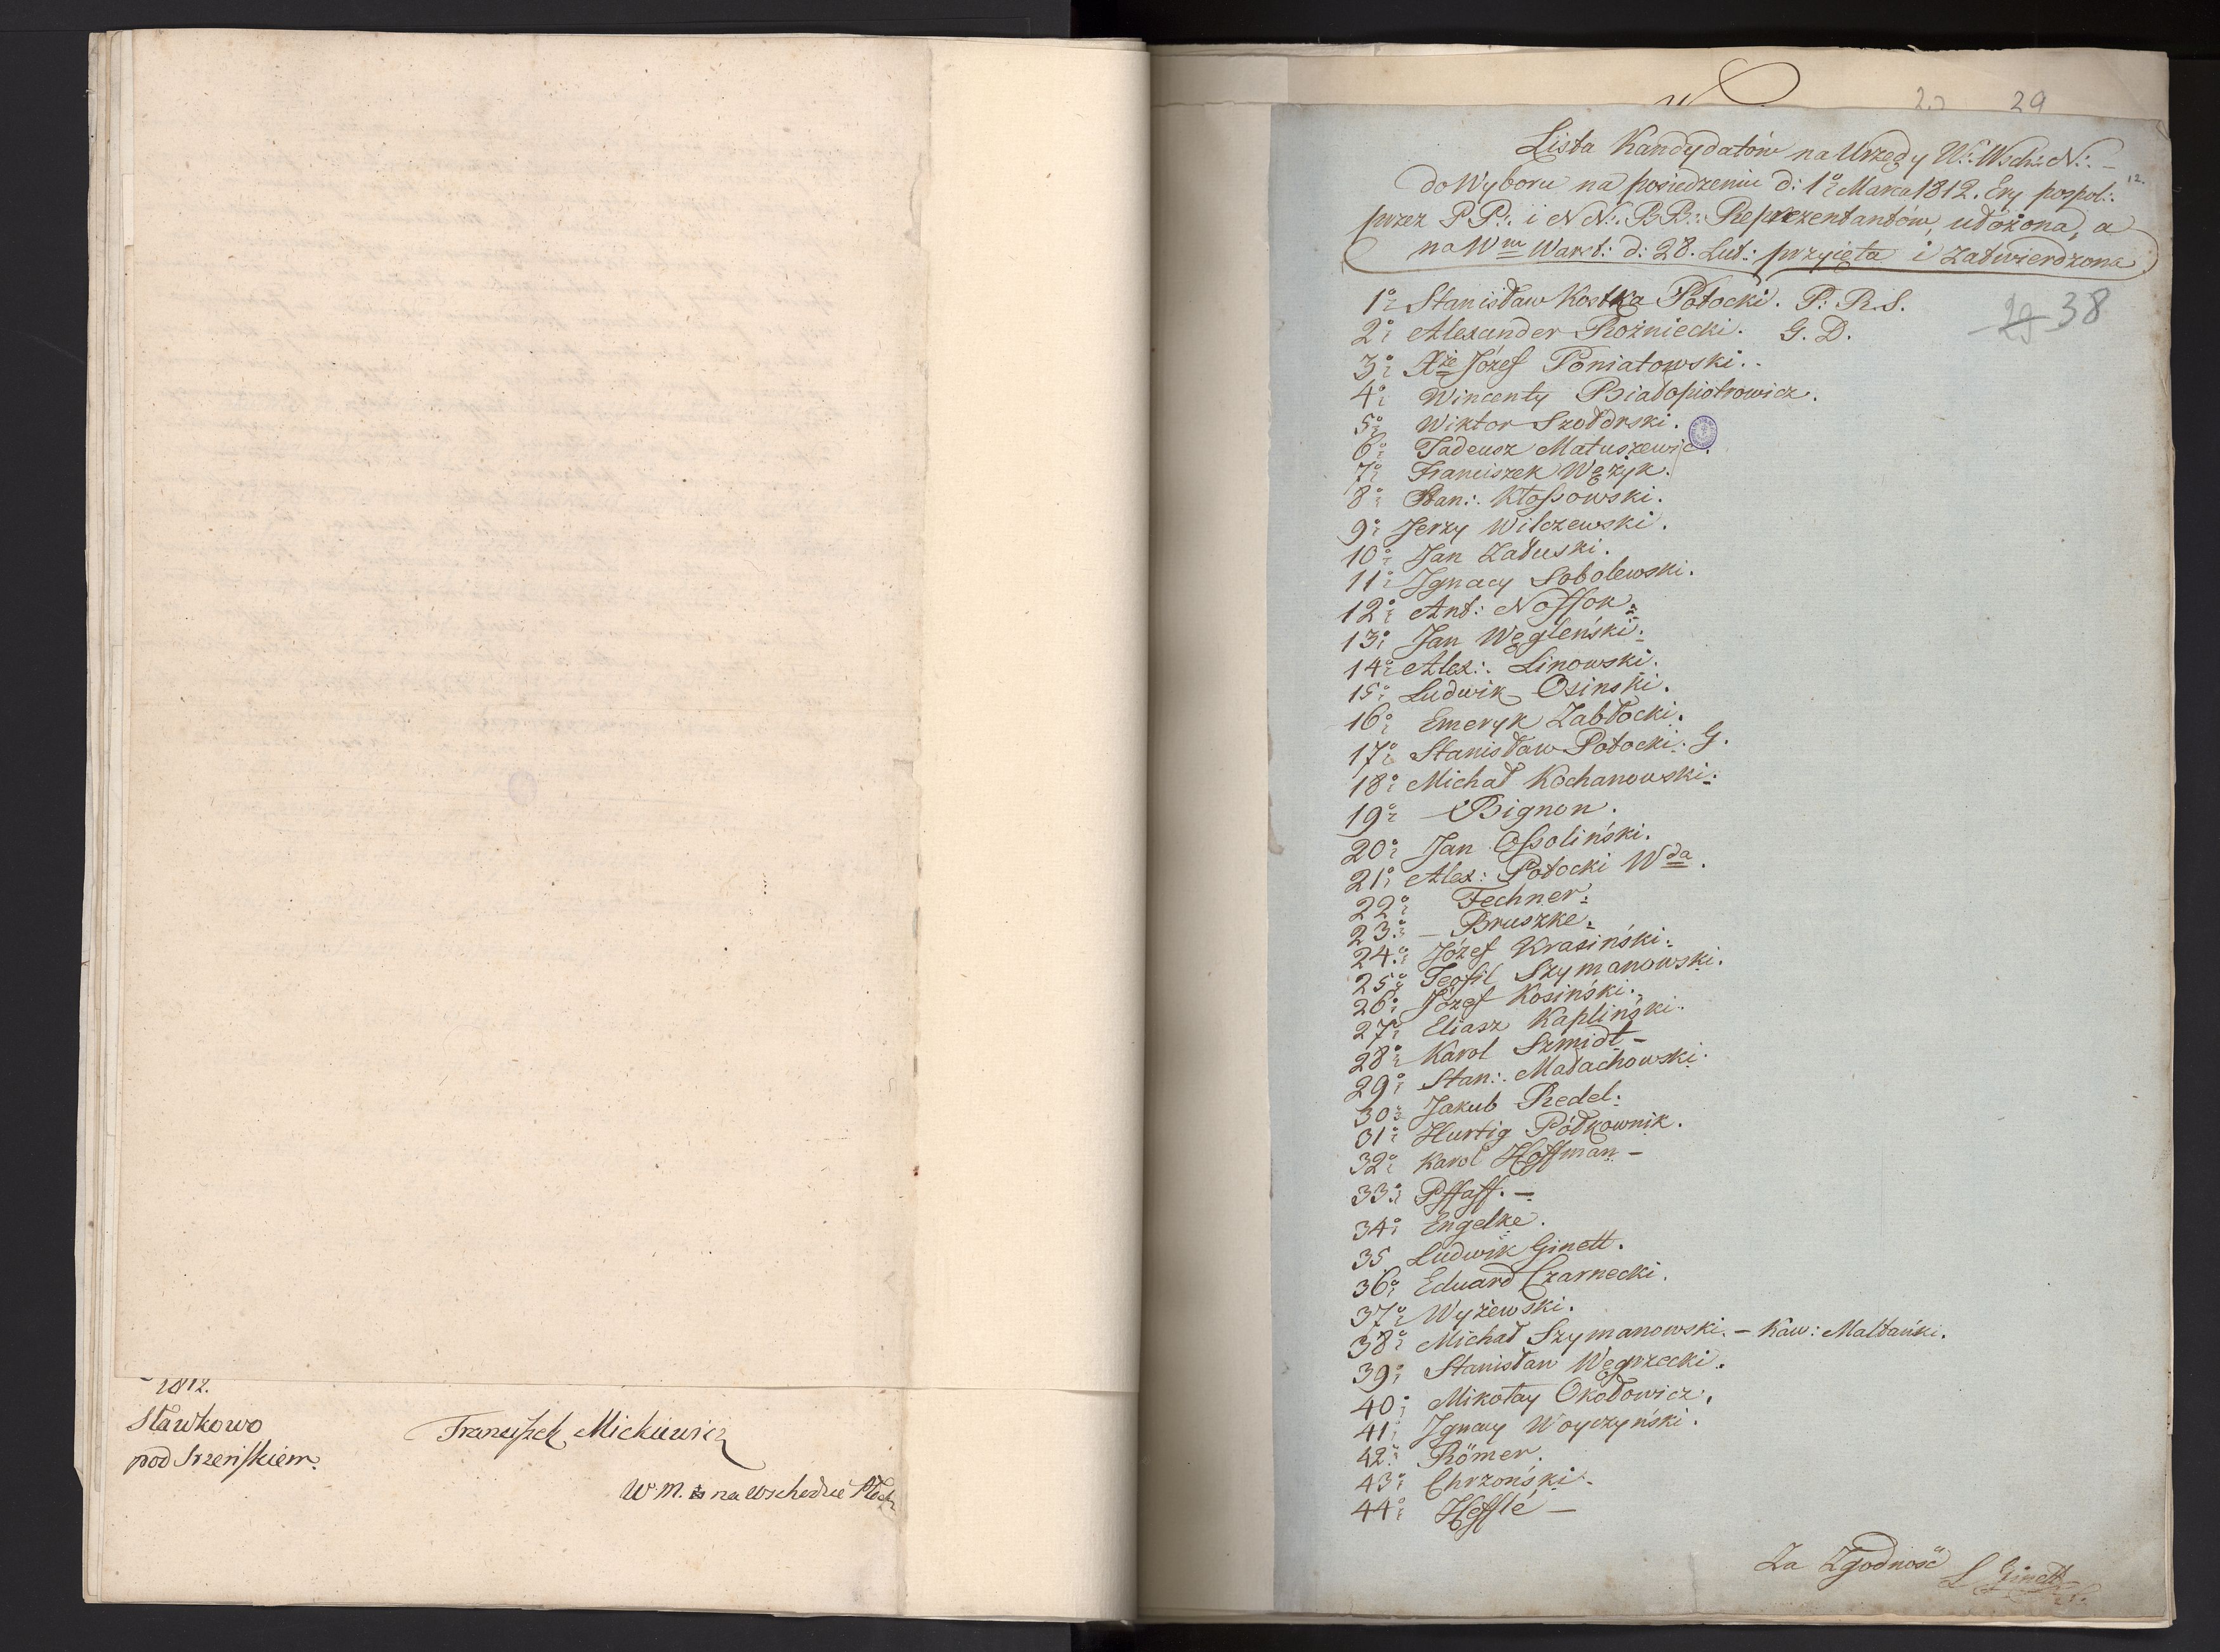 1812.
Sławkowo
pod Szreńskiem.
Franciszek Mickiewicz
W. M. na wschodzie Płock
29
Lista Kandydatów na Urzędy W:. Wsch:. N:. –
do Wyboru na posiedzeniu d: 1º Marca 1812. Ery pospol:. 12.
przez P P:. i N N:. B B:. Reprezentantów, ułożona, a
na W m Warst: d: 28. Lut: przyięta i Zatwierdzona
29 38
1º Stanisław Kostka Potocki. P: R. S.
2º Alexander Rożniecki. G. D.
3º Xże Józef Poniatowski.
4º Wincenty Białopiotrowicz.
5º Wiktor Szołdrski.
6º Tadeusz Matuszewic.
7º Franciszek Wężyk.
8º Stan:. Kłossowski.
9º Jerzy Wilczewski.
10º Jan Załuski.
11º Ignacy Sobolewski.
12º Ant: Nossok.
13º Jan Węgleński.
14º Alex:. Linowski.
15º Ludwik Osinski.
16º Emeryk Zabłocki.
17º Stanisław Potocki. G.
18º Michał Kochanowski.
19º Bignon.
20º Jan Ossoliński.
21º Alex: Potocki Wda.
22º Fechner.
23º – Bruszke.
24º Józef Krasiński.
25º Teofil Szymanowski.
26º Józef Kosiński.
27º Eliasz Kapliński.
28º Karol Szmidt –
29º Stan:. Małachowski.
30º Jakub Redel.
31º Hurtig Półkownik.
32º Karol Hoffman –
33º Pffaff. –
34º Engelke.
35 Ludwik Ginett.
36º Eduard Czarnecki.
37º Wyżewski.
38º Michał Szymanowski. – Kaw: Maltański.
39º Stanisław Węgrzecki.
40º Mikołay Okołowicz.
41º Ignacy Woyczyński.
42º Römer.
43º Chrzoński.
44º Heffle –
Za Zgodność L Ginett